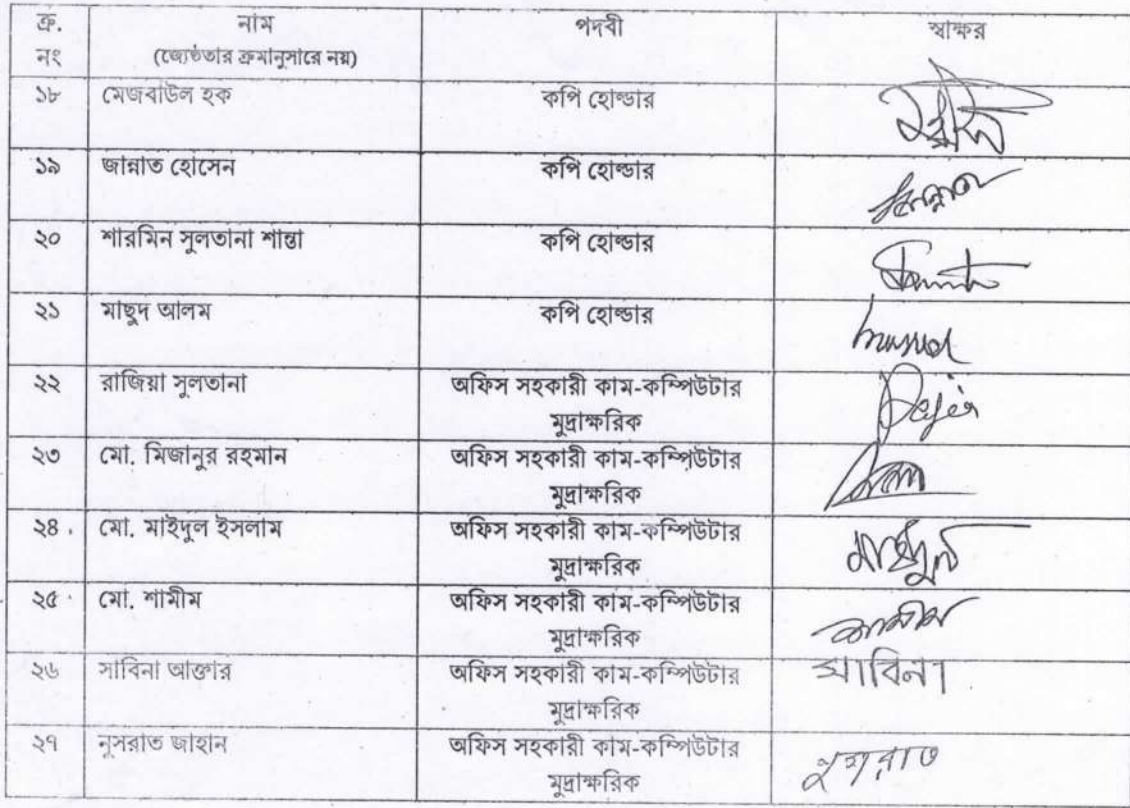 ক্র. নাম পদবী স্বাক্ষর
নং (জ্যেষ্ঠতার ক্রমানুসারে নয়)
১৮ মেজবাউল হক কপি হোল্ডার
১৯ জান্নাত হোসেন কপি হোল্ডার জান্নাত
২০ শারমিন সুলতানা শান্তা কপি হোল্ডার
২১ মাছুদ আলম কপি হোল্ডার
২২ রাজিয়া সুলতানা অফিস সহকারী কাম-কম্পিউটার
মুদ্রাক্ষরিক
২৩ মো. মিজানুর রহমান অফিস সহকারী কাম-কম্পিউটার
মুদ্রাক্ষরিক
২৪ মো. মাইদুল ইসলাম অফিস সহকারী কাম-কম্পিউটার
মুদ্রাক্ষরিক মাইদুল
২৫ মো. শামীম অফিস সহকারী কাম-কম্পিউটার
মুদ্রাক্ষরিক শামীম
২৬ সাবিনা আক্তার অফিস সহকারী কাম-কম্পিউটার সাবিনা
মুদ্রাক্ষরিক
২৭ নুসরাত জাহান অফিস সহকারী কাম-কম্পিউটার
মুদ্রাক্ষরিক নুসরাত